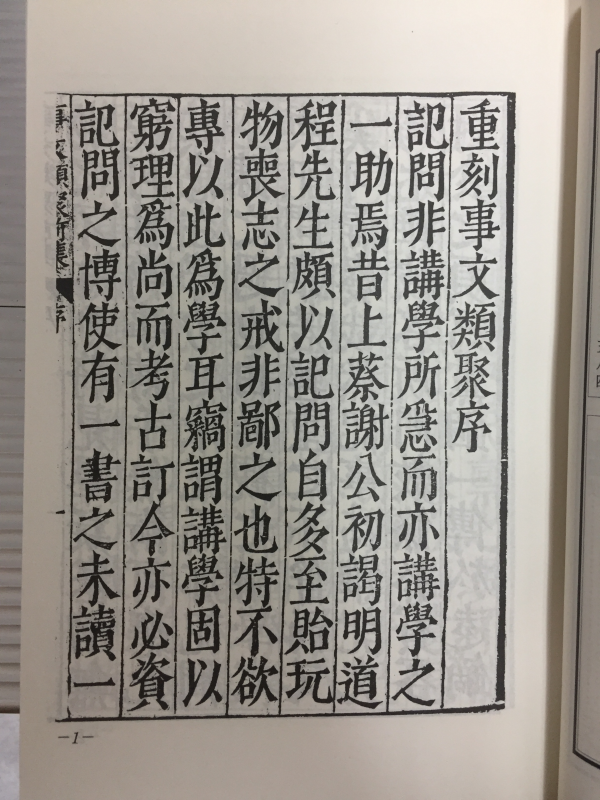 重刻事文類聚序
記問非講學所急而亦講學之
一助焉昔上蔡謝公初謁明道
程先生頗以記問自多至貽玩
物喪志之戒非鄙之也特不欲
專以此爲學耳竊謂講學固以
窮理爲尚而考古訂今亦必資
記問之博使有一書之未讀一
事文類聚新集 序
一
-1-